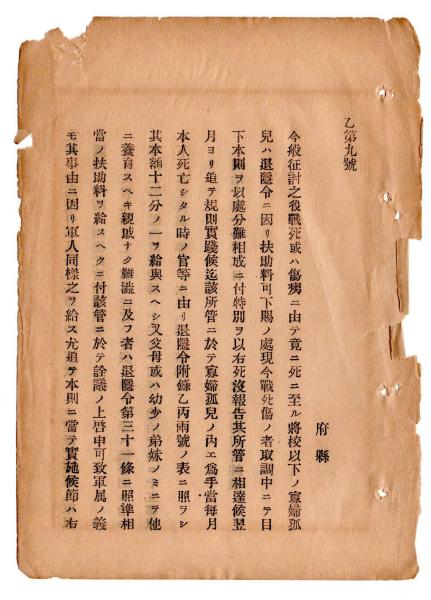 乙第九號
府縣
今般征討之役戰死或ハ傷痍ニ由テ竟ニ死ニ至ル將校以下ノ寡婦孤
兒ハ退隱令ニ因リ扶助料可下賜ノ處現今戰死傷ノ者取調中ニテ目
下本則ヲ以處分難相成ニ付特別ヲ以右死沒報告其所管ニ相達候翌
月ヨリ追テ規則實踐候迄該所管ニ於テ寡婦孤兒ノ內エ爲手當每月
本人死亡シタル時ノ官等ニ由リ退隱令附錄乙丙兩號ノ表ニ照ヲシ
其本額十二分ノ一ヲ給與スヘシ又父母或ハ幼少ノ弟妹ノミニテ他
ニ養育スヘキ親戚ナク難澁ニ及フ者ハ退隱令第三十一條ニ照準相
當ノ扶助料ヲ給スヘクニ付該管ニ於テ詮議ノ上啓申可致軍属ノ義
モ其事由ニ因リ軍人同樣之ヲ給ス尤追テ本則ニ當テ實施候節ハ右